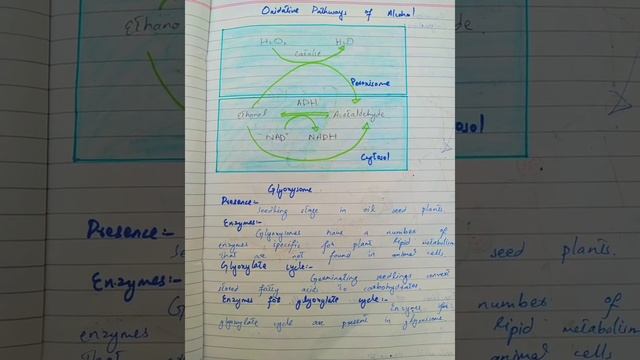 Oxidative Pathways of Alcohol
H₂O₂ H₂O
Catalase
Peroxisome
ADH
Ethanol Acetaldehyde
NAD⁺ NADH
Cytosol
Glyoxysome
Presence:-
Seedling stage in oil seed plants.
Enzymes:-
Glyoxysomes have a number of
enzymes specific for plant lipid metabolism
that are not found in animal cells.
Glyoxylate cycle:-
Germinating seedlings convert
stored fatty acids to carbohydrates.
Enzymes for glyoxylate cycle:-
Enzymes for
glyoxylate cycle are present in glyoxysome